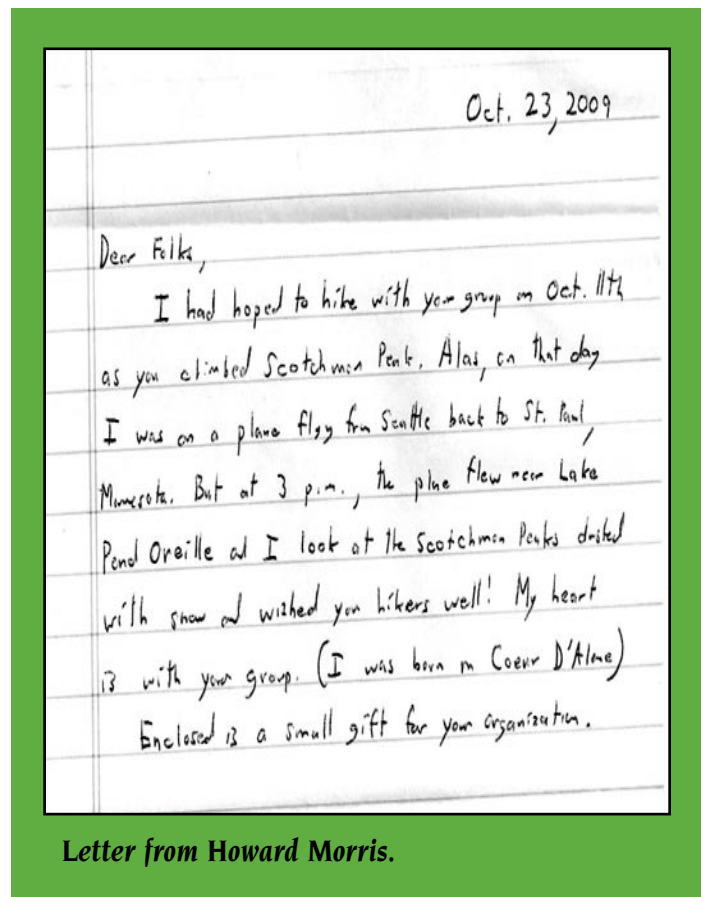 Oct. 23, 2009
Dear Folks,
I had hoped to hike with your group on Oct. 11th
as you climbed Scotchman Peak. Alas, on that day
I was on a plane flyg from Seattle back to St. Paul,
Minnesota. But at 3 p.m., the plane flew near Lake
Pend Oreille ad I look at the Scotchman Peaks dusted
with snow ad wished you hikers well! My heart
is with your group. (I was born in Coeur D'Alene)
Enclosed is a small gift for your organization.
Letter from Howard Morris.